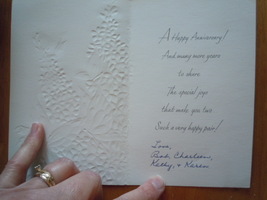 A Happy Anniversary!
And many more years
to share
The special joys
that make you two
Such a very happy pair!
Love,
Kelly, & Karen